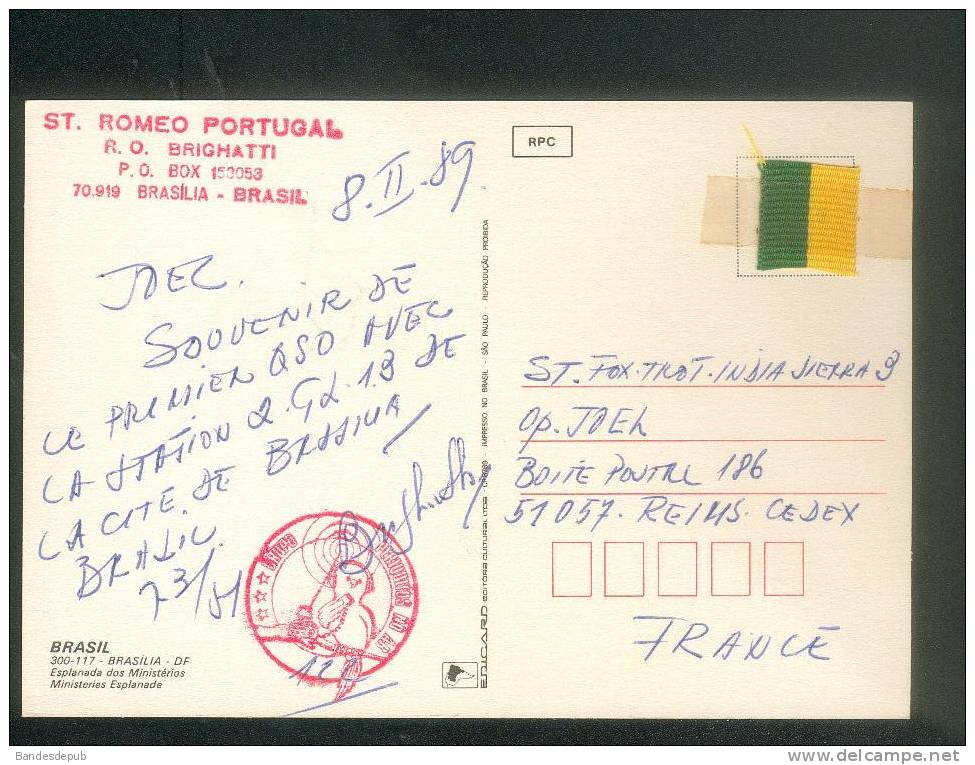 ST. ROMEO PORTUGAL
R. O. BRIGHATTI
P. O. BOX 153053
70.919 BRASÍLIA - BRASIL
8.II.89
JOEL.
SOUVENIR DE
LE PREMIER QSO AVEC
LA STATION 2.GL.13 DE
LA CITE. DE BRASILIA
BRASIL.
73/51
122
BRASIL
300-117 - BRASÍLIA - DF
Esplanada dos Ministérios
Ministeries Esplanade
EDICARD EDITORA CULTURAL LTDA - IMPRESSO NO BRASIL - SÃO PAULO REPRODUÇÃO PROIBIDA
RPC
ST. FOX-TROT. INDIA SIERRA 3
Op. JOEL
BOITE POSTAL 186
51057. REIMS. CEDEX
FRANCE
Bandesdepub
www.delcampe.net